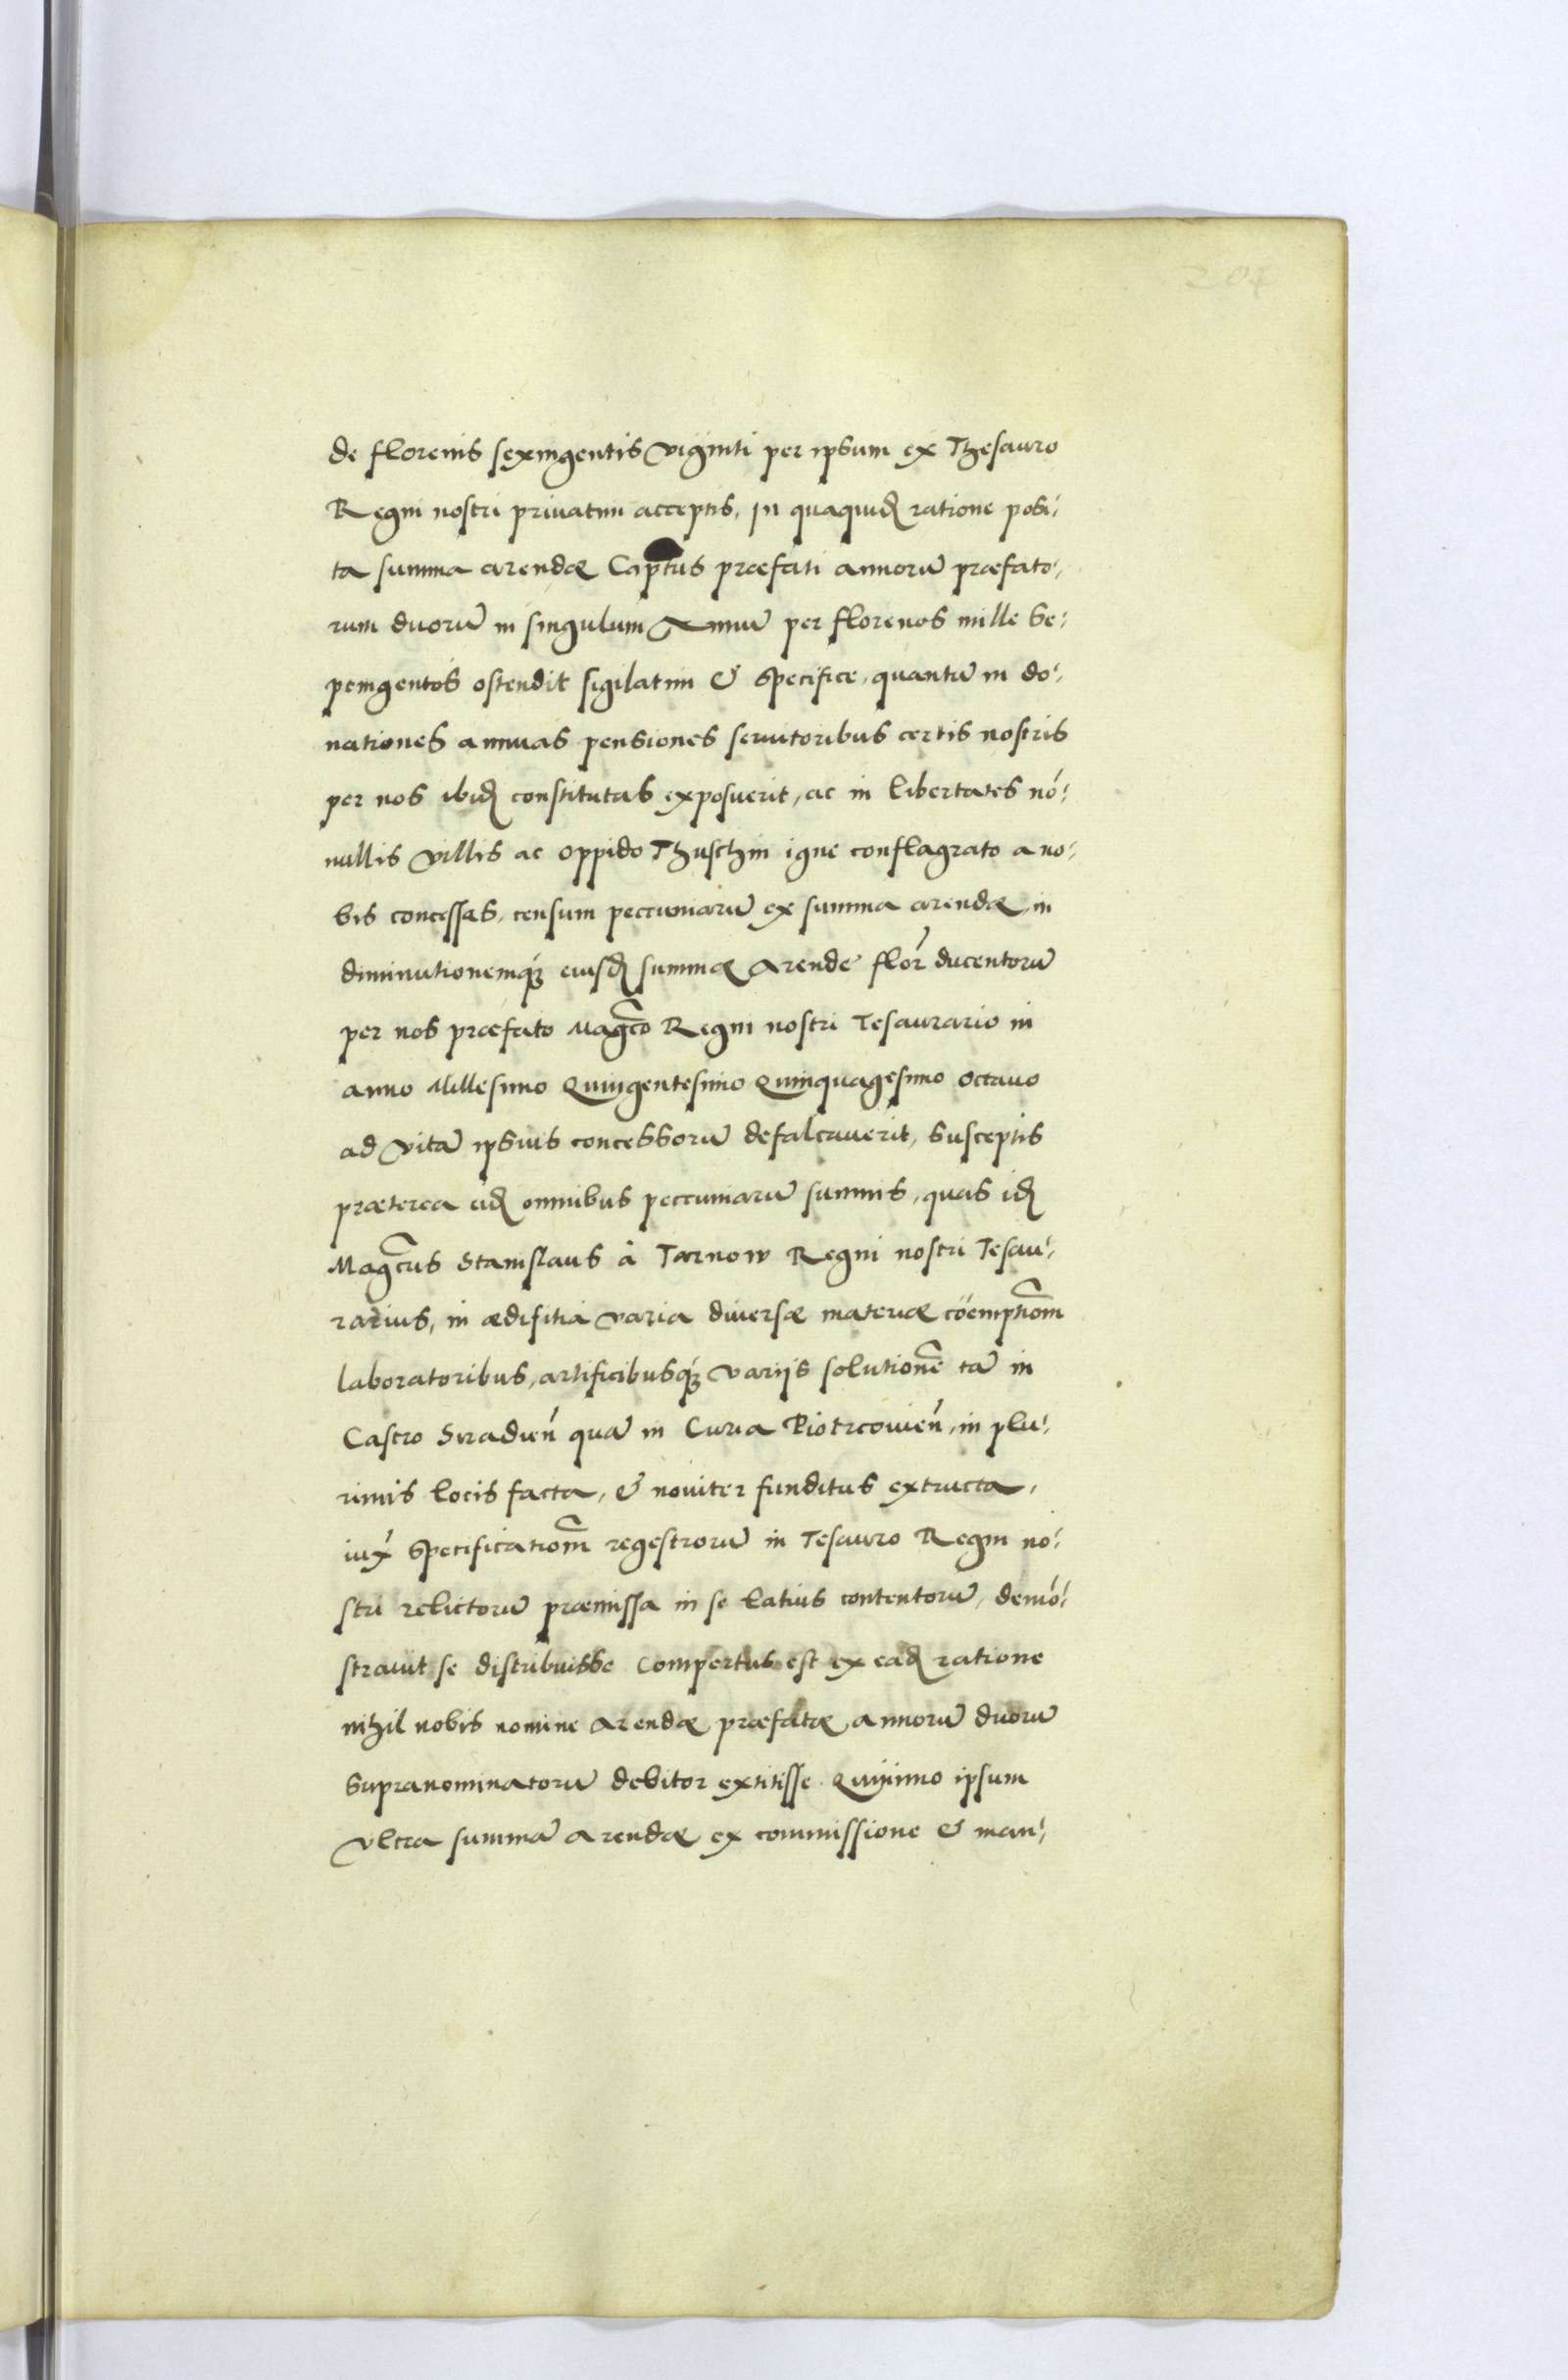 204
de florenis sexingentis viginti per ipsum ex Thesauro
Regni nostri privatim acceptis, In quaquid ratione posi:
ta summa arendæ Captus præfati annorū præfato:
rum duorū in singulum Annū per florenos mille se:
pengentos ostendit sigilatim & specifice, quantū in do:
nationes annuas pensiones servitoribus certis nostris
per nos ibid constitutas exposuerit, ac in libertates nō:
nullis villis ac oppido Thuschin igne conflagrato a no:
bis concessas, censum peccuniarū ex summa arendæ, in
diminutionemq eiusd summæ arende flor ducentorū
per nos præfato Magco Regni nostri Tesaurario in
anno Millesimo Quingentesimo Quinquagesimo octavo
ad vitā ipsius concessorū defalcaverit, susceptis
præterea eid omnibus peccuniarū summis, quas id
Magcus Stanislaus â Tarnow Regni nostri Tesau:
rarius, in ædifitia varia diversæ materiæ cöemptiom
laboratoribus, artificibusq variis solutionē tā in
Castro Siradien quā in Curia Piotrcovien, in plu:
rimis locis facta, & noviter funditus extructa,
iux specificatiom regestrorū in Tesauro Regni no:
stri relictorū præmissa in se latius contentorū, demō:
stravit se distribuisse Compertus est ex ead ratione
nihil nobis nomine arendæ præfatæ annorū duorū
supranominatorū debitor extitisse. Quinimo ipsum
ultra summā arendæ ex commissione & man: